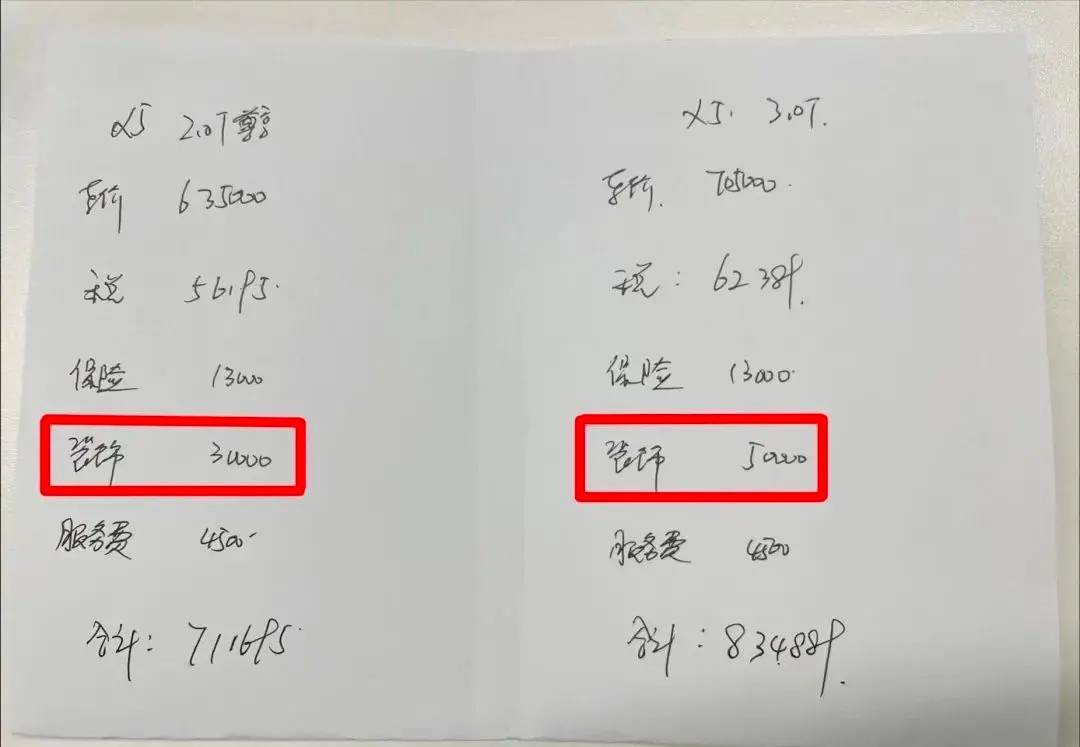 X5 2.0T 尊享
车价 635000
税 56195.
保险 13000
装饰 30000
服务费 4500
合计: 711695.
X5. 3.0T.
车价. 705000.
税: 62389.
保险 13000.
装饰 50000
服务费 4500
合计: 834889.